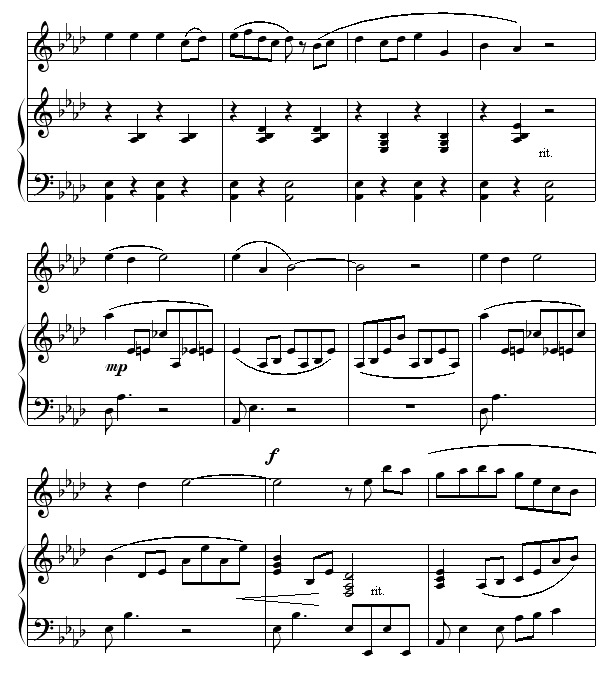 rit.
mp
f
rit.